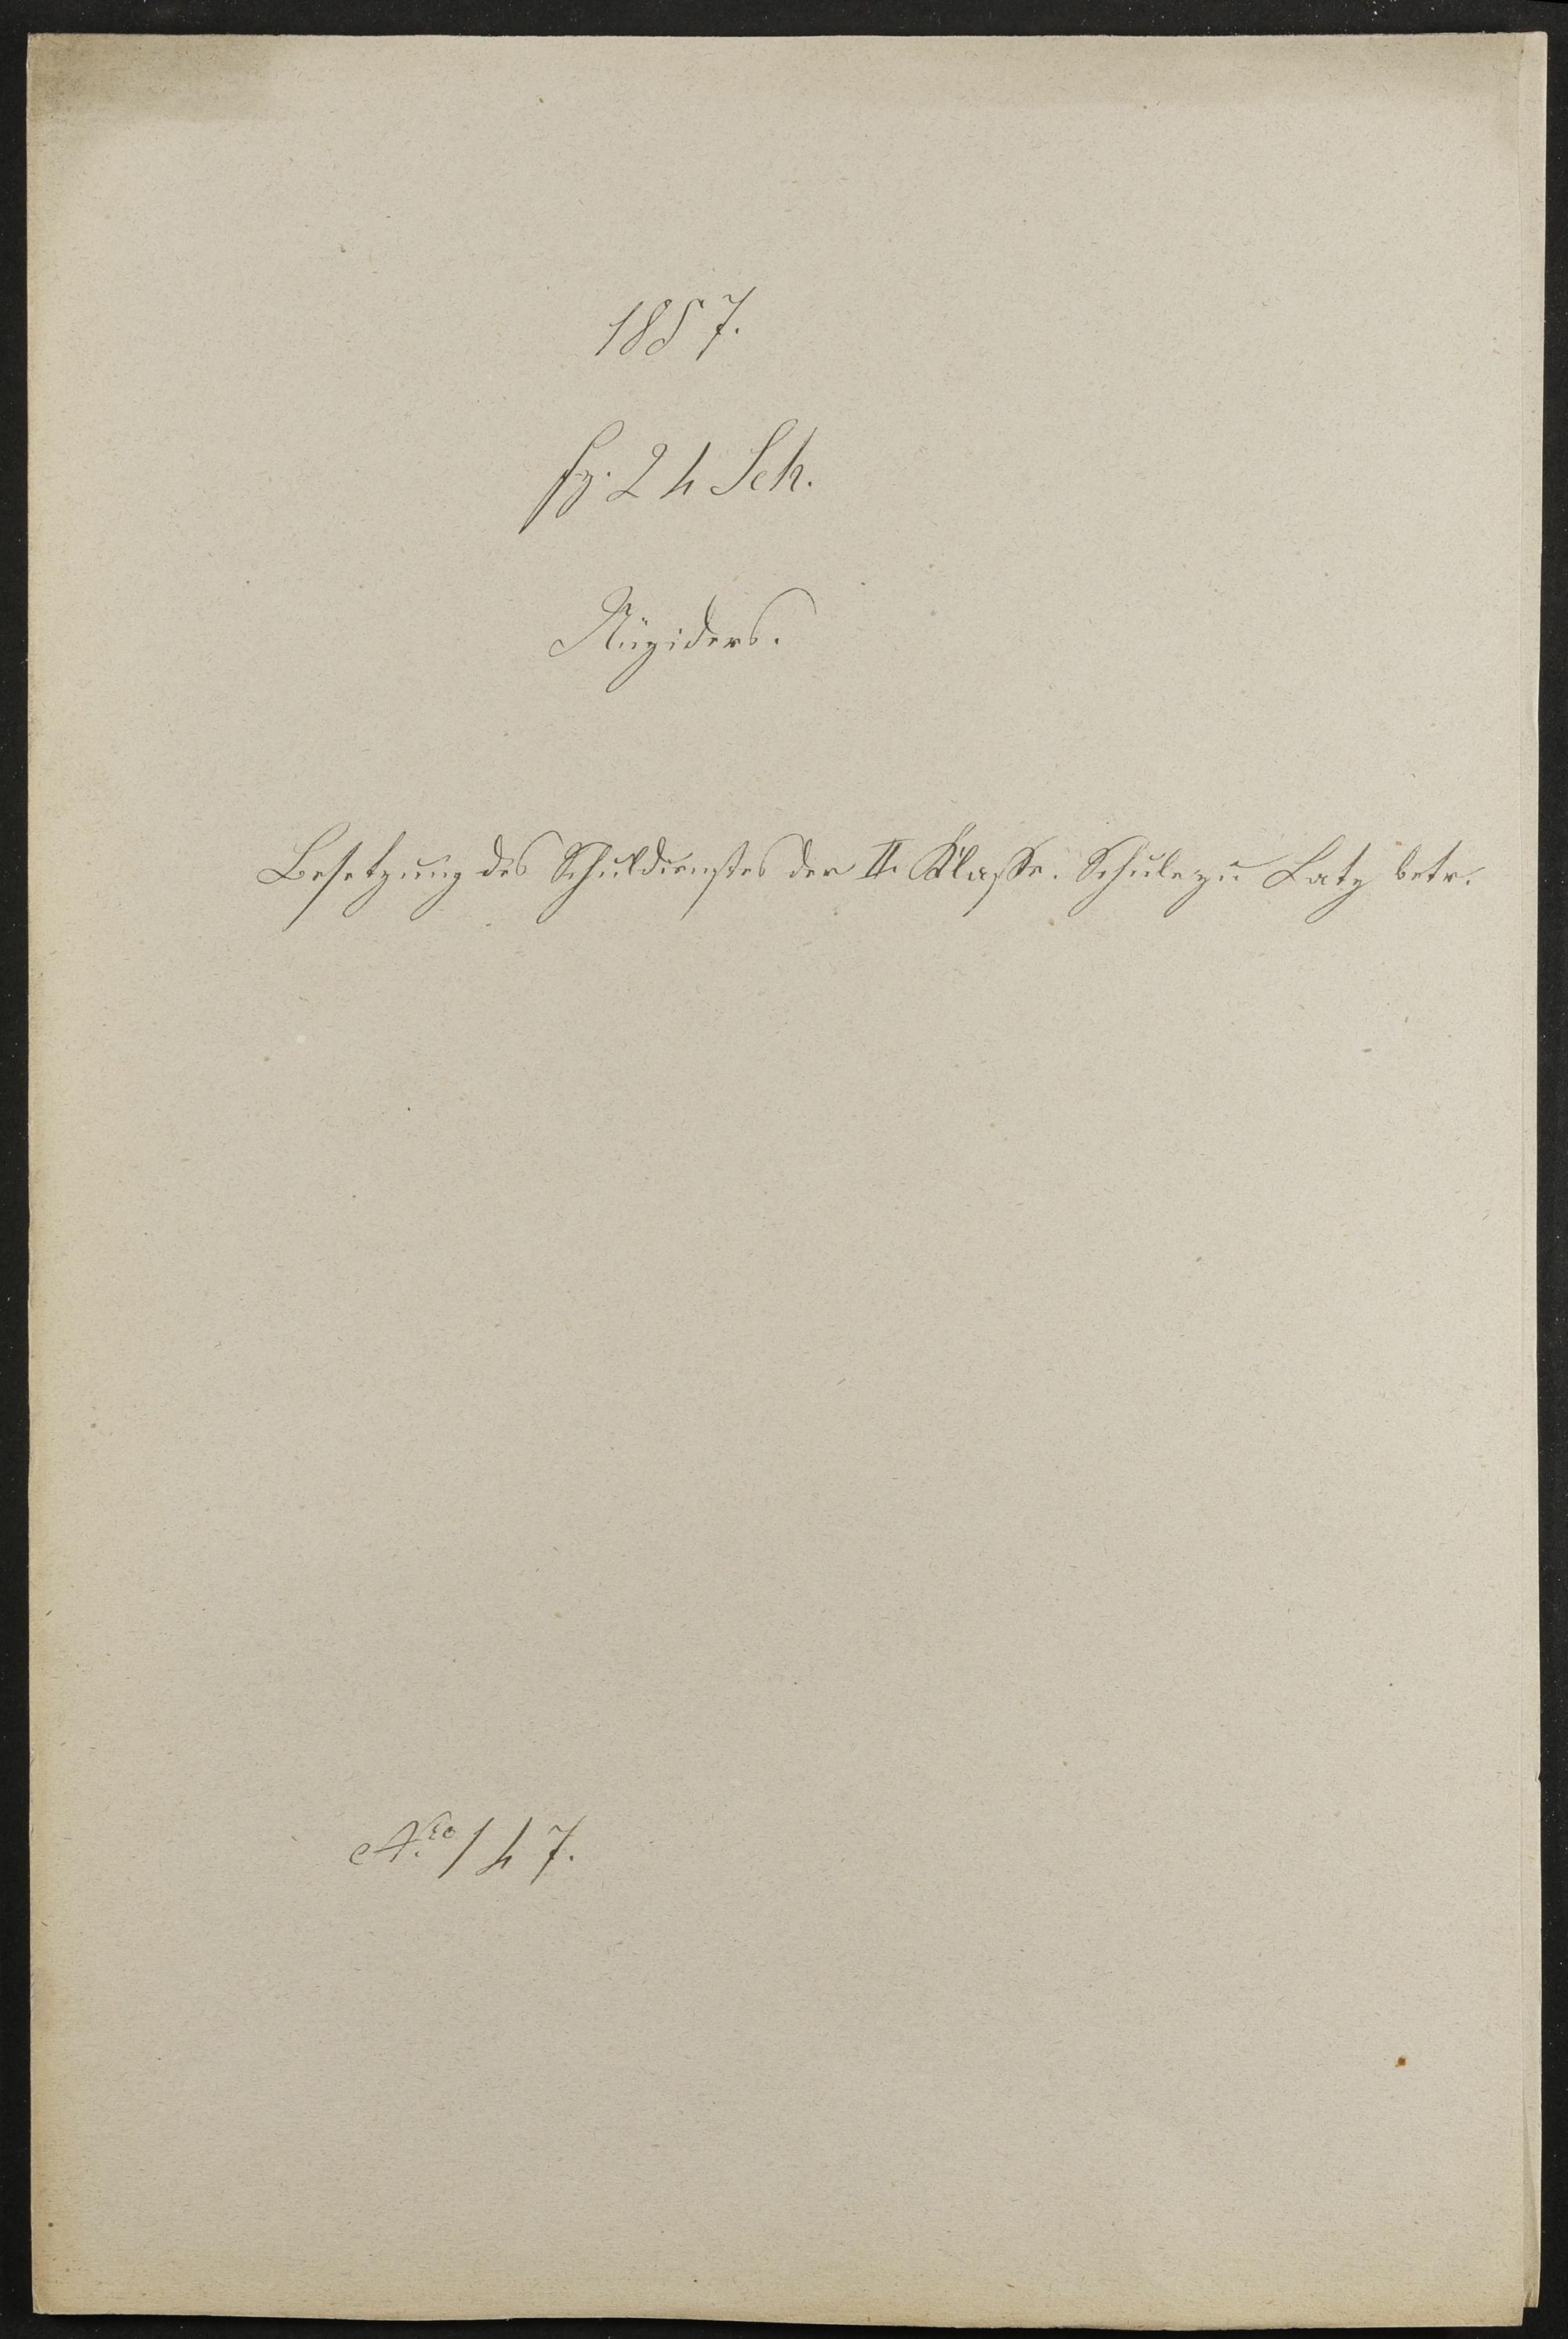 1857.
fz. 24 Sch.
Nüziders.
Besetzung des Schuldienstes der II. Klasse. Schule zu Latz betr.
Nro 147.